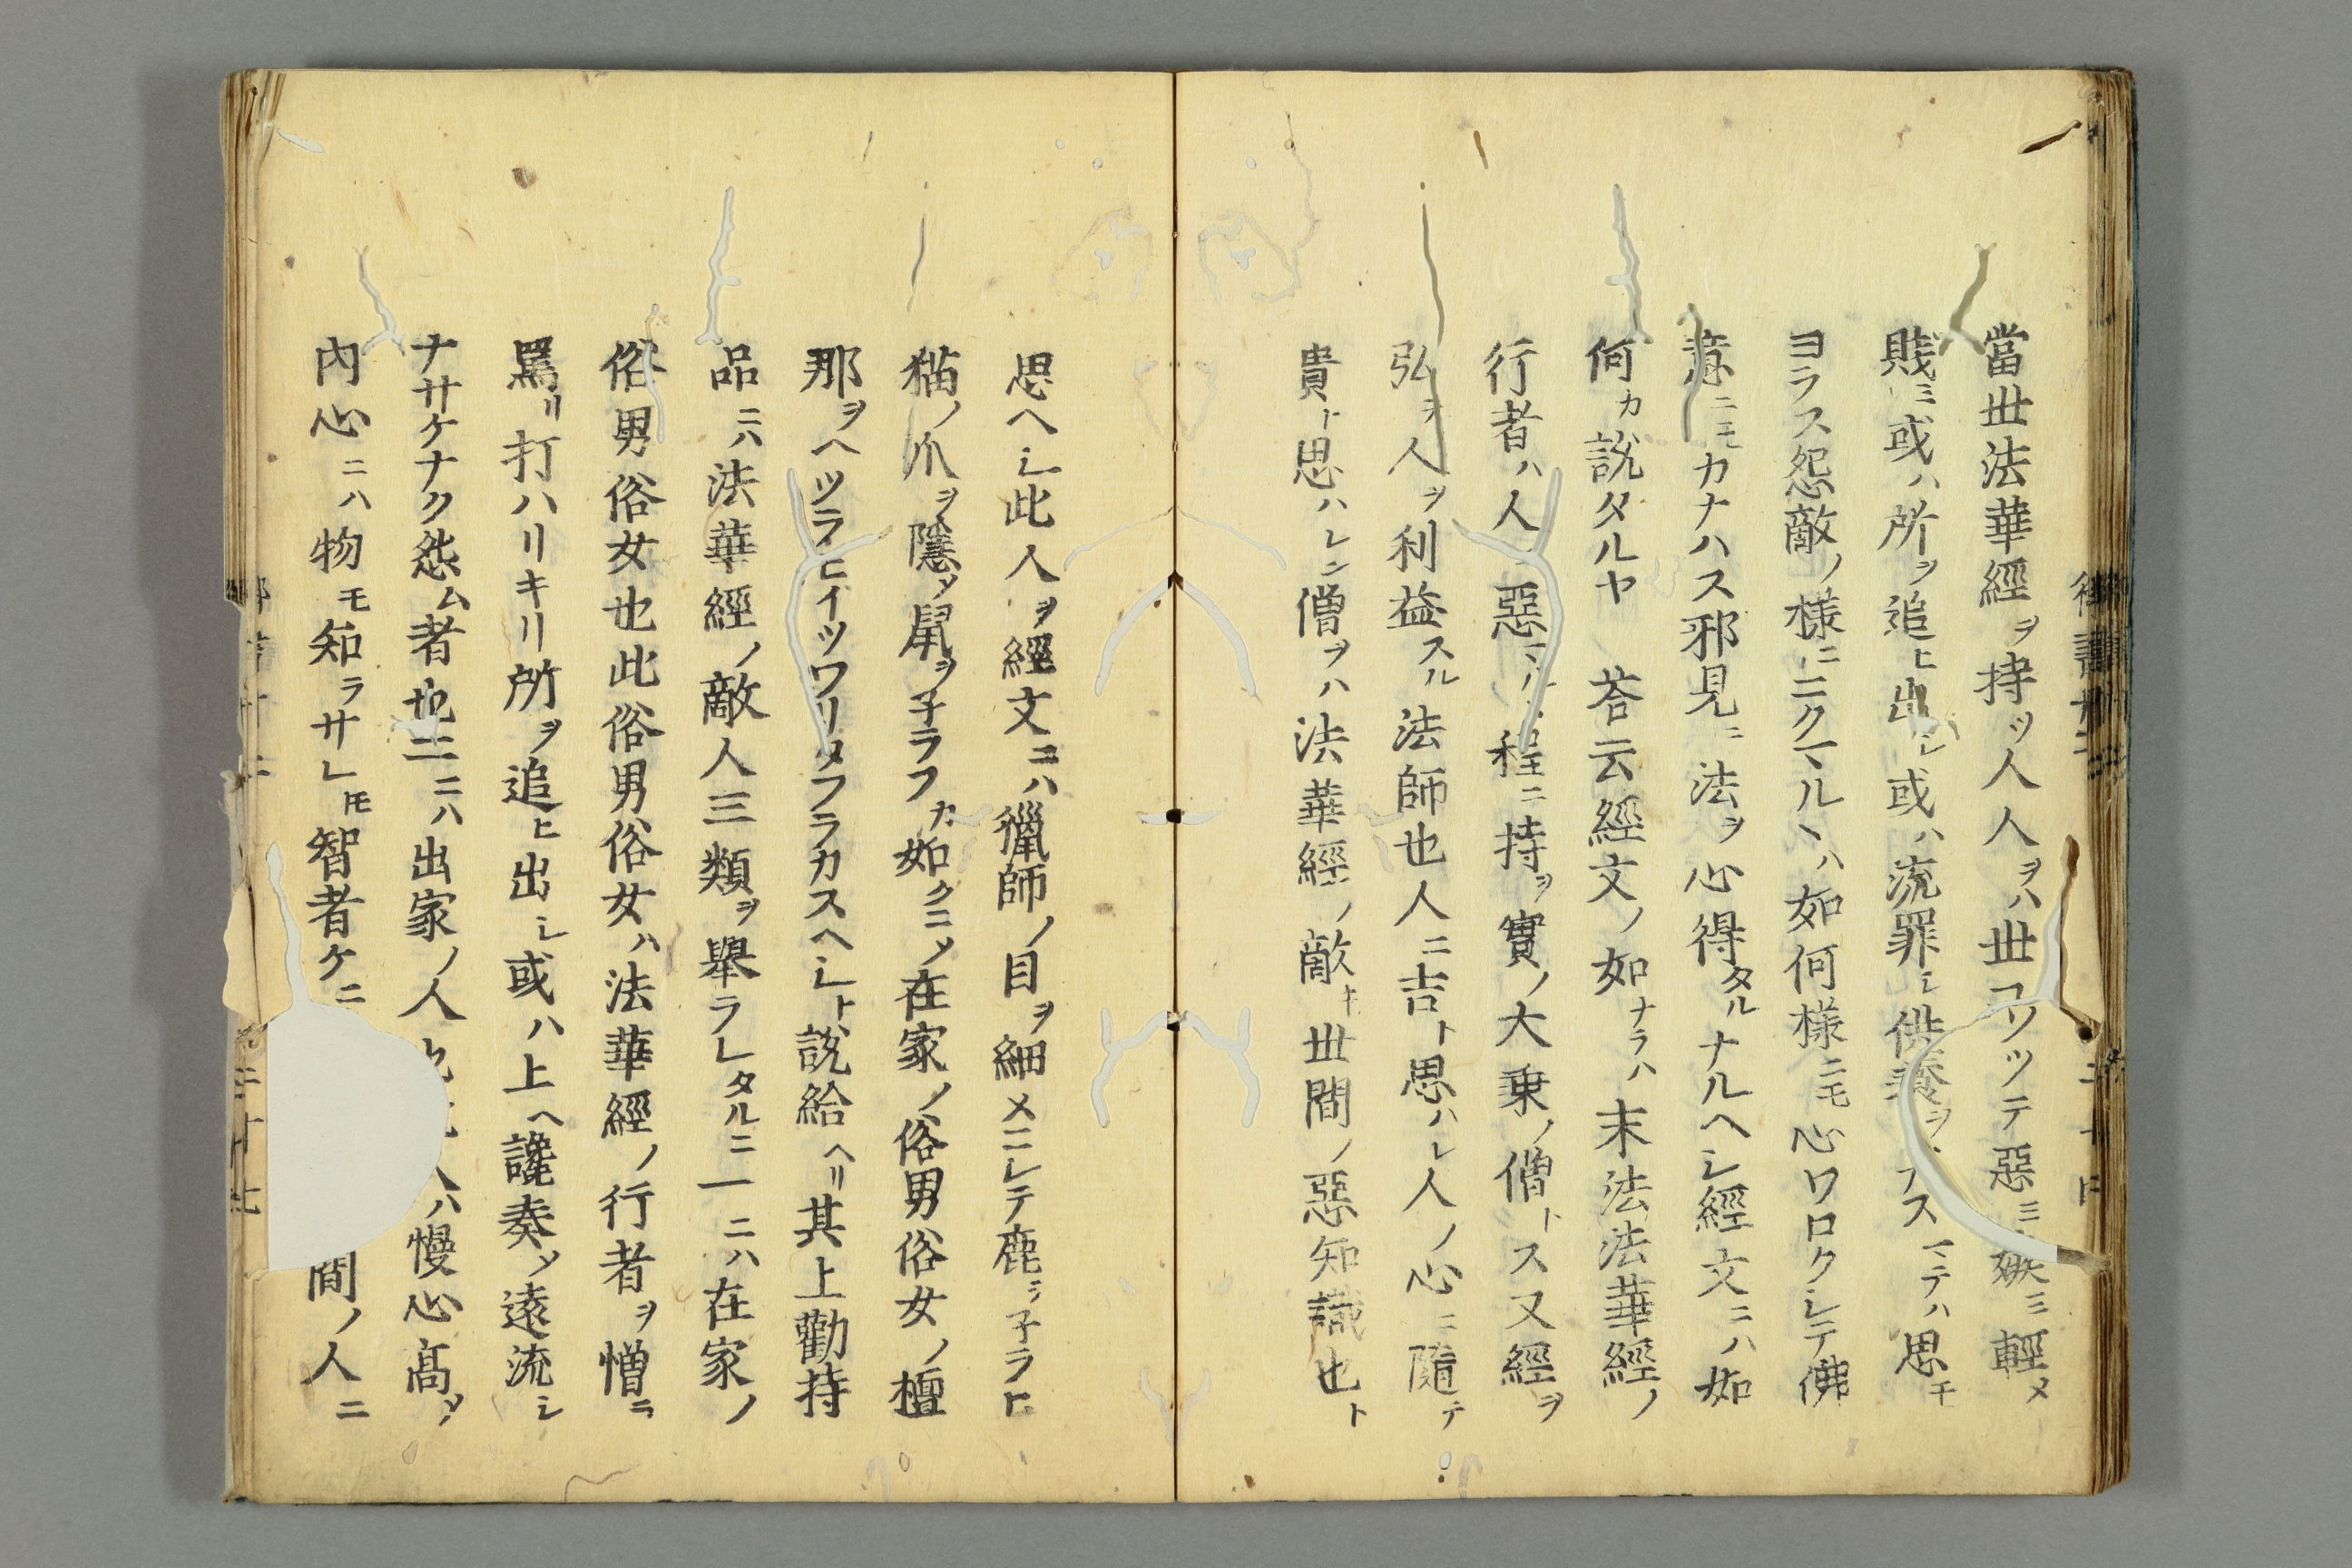 當世法華經ヲ持ツ人人ヲハ世コソツテ惡ミ嫉ミ輕メ
賤ミ或ハ所ヲ追ヒ出シ或ハ流罪シ供養ヲ スマテハ思モ
ヨラス怨敵ノ様ニニクマルヽハ如何様ニモ心ワロクシテ佛
意ニモカナハス邪見ニ法ヲ心得タルナルヘシ經文ニハ如
何カ說タルヤ 荅云經文ノ如ナラハ末法法華經ノ
行者ハ人ニ惡マルヽ程ニ持ヲ實ノ大乗ノ僧トス又經ヲ
弘ヲ人ヲ利益スル法師也人ニ吉ト思ハレ人ノ心ニ隨テ
貴ト思ハレン僧ヲハ法華經ノ敵キ世間ノ惡知識也ト
思ヘシ此人ヲ經文ニハ獵師ノ目ヲ細メニシテ鹿ヲ子ラヒ
猫ノ爪ヲ隱メ鼠ヲ子ラフカ如クニメ在家ノ俗男俗女ノ檀
那ヲヘツラヒイツワリタフラカスヘシト說給ヘリ其上勸持
品ニハ法華經ノ敵人三類ヲ舉ラレタルニ一ニハ在家ノ
俗男俗女也此俗男俗女ハ法華經ノ行者ヲ憎ミ
罵リ打ハリキリ所ヲ追ヒ出シ或ハ上ヘ讒奏ツ遠流シ
ナサケナク怨ム者也二ニハ出家ノ人 ハ慢心高メ
內心ニハ物モ知ラサレ𪜈智者ケニ 間ノ人ニ